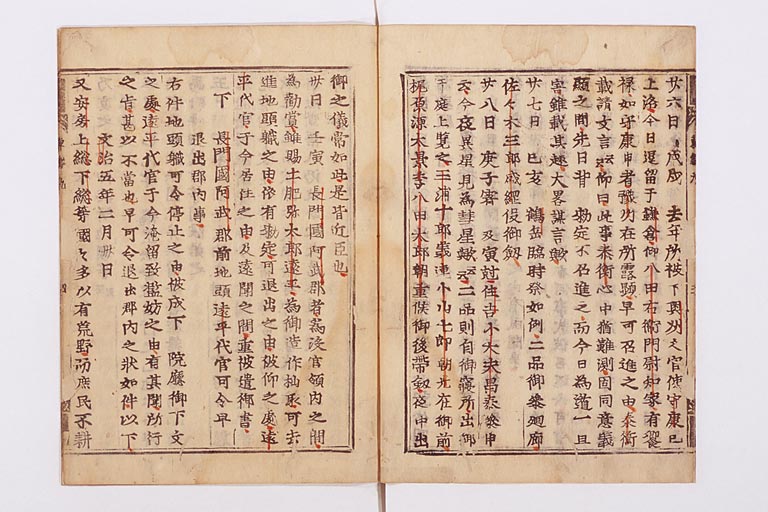 廿六日 戊戌 去年所被下奥州之官使守康已
上洛今日逗留于鎌倉仰八田右衛門尉知家有饗
禄如守康申者豫州在所露顕早可召進之由泰衡
載請文言云云仰曰此事泰衡心中猶難測固同意義
顕之間先日背勅定不召進之而今日為遁一旦
害雖載其趣大略謀言歟
廿七日 己亥 鶴岳臨時祭如例二品御参廻廊
佐々木三郎盛綱役御釼
廿八日 庚子霽 及寅尅住吉小大夫昌泰参申
云今夜異星見為彗星歟云云二品則自御寝所出御
于庭上覧之三浦十郎義連小山七郎朝光在御前
梶原源太景季八田太郎朝重候御後帯釼夜中出
御之儀常如此是皆近臣也
卅日 壬寅 長門國阿武郡者為没官領内之間
為勸賞雖賜土肥弥太郎遠平為御造作杣取可去
進地頭職之由依有勅定可退出之由被仰之處遠
平代官于今居住之由及遠聞之間重被遣御書
下 長門國阿武郡前地頭遠平代官可令早
退出郡内事
右件地頭職可令停止之由被成下 院廳御下文
之處遠平代官于今淹留致濫妨之由有其聞所行
之旨甚以不當也早可令退出郡内之状如件以下
文治五年二月卅日
又安房上総下総等國々多以有荒野而庶民不耕